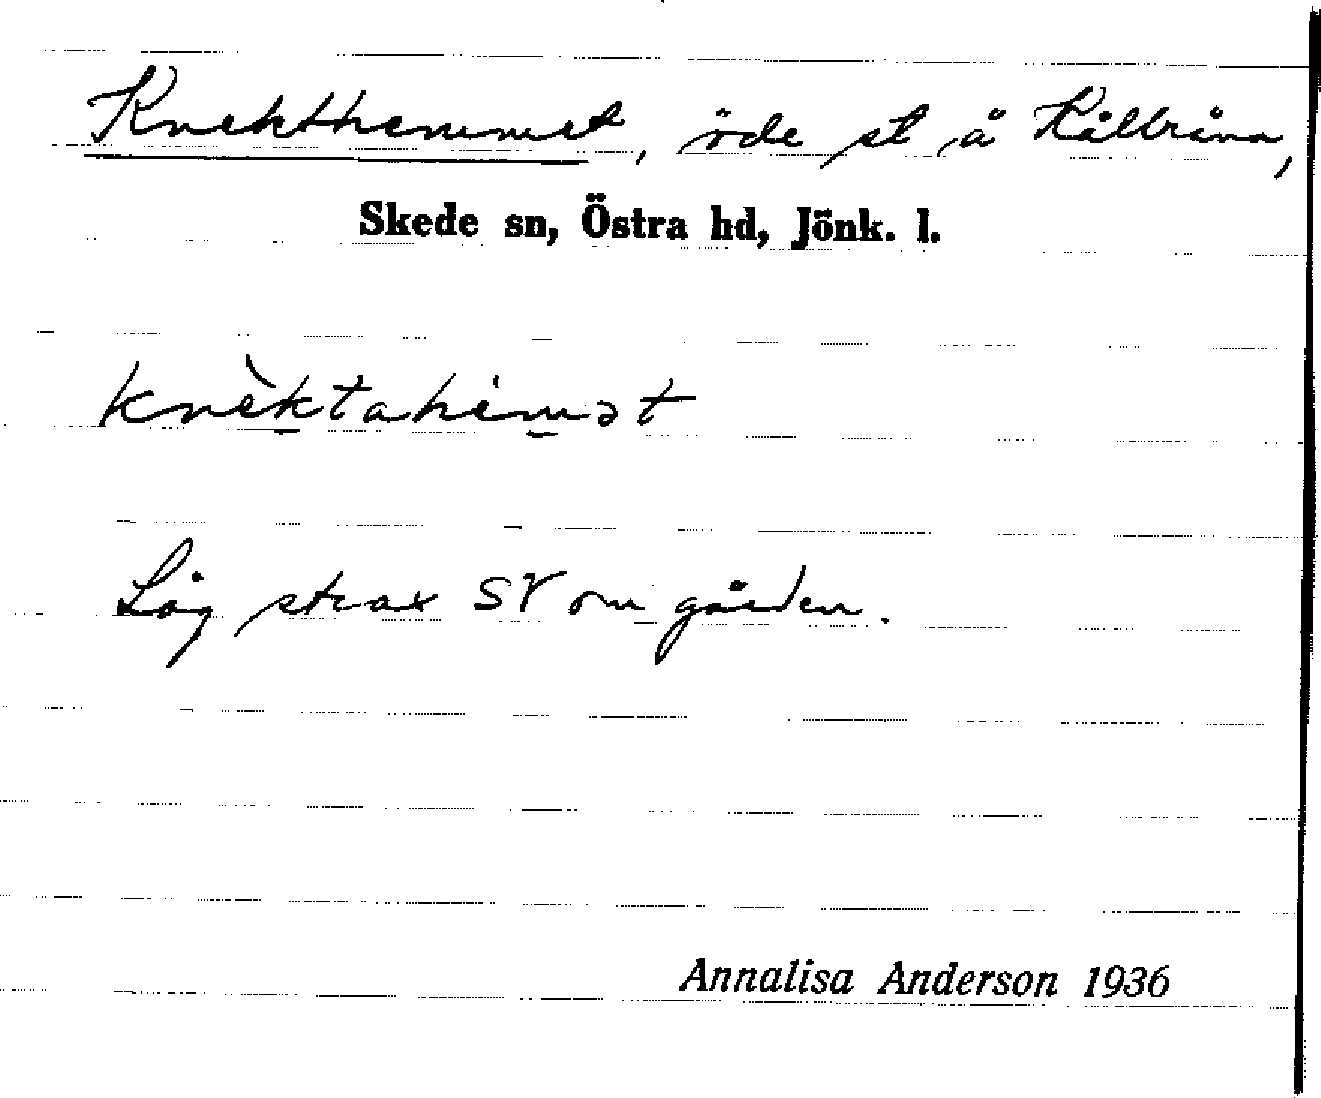 Knekthemmet, öde st å Kållbråna,
Skede sn, Östra hd, Jönk. l.
knèktahemət
Låg strax SV om gården.
Annalisa Anderson 1936